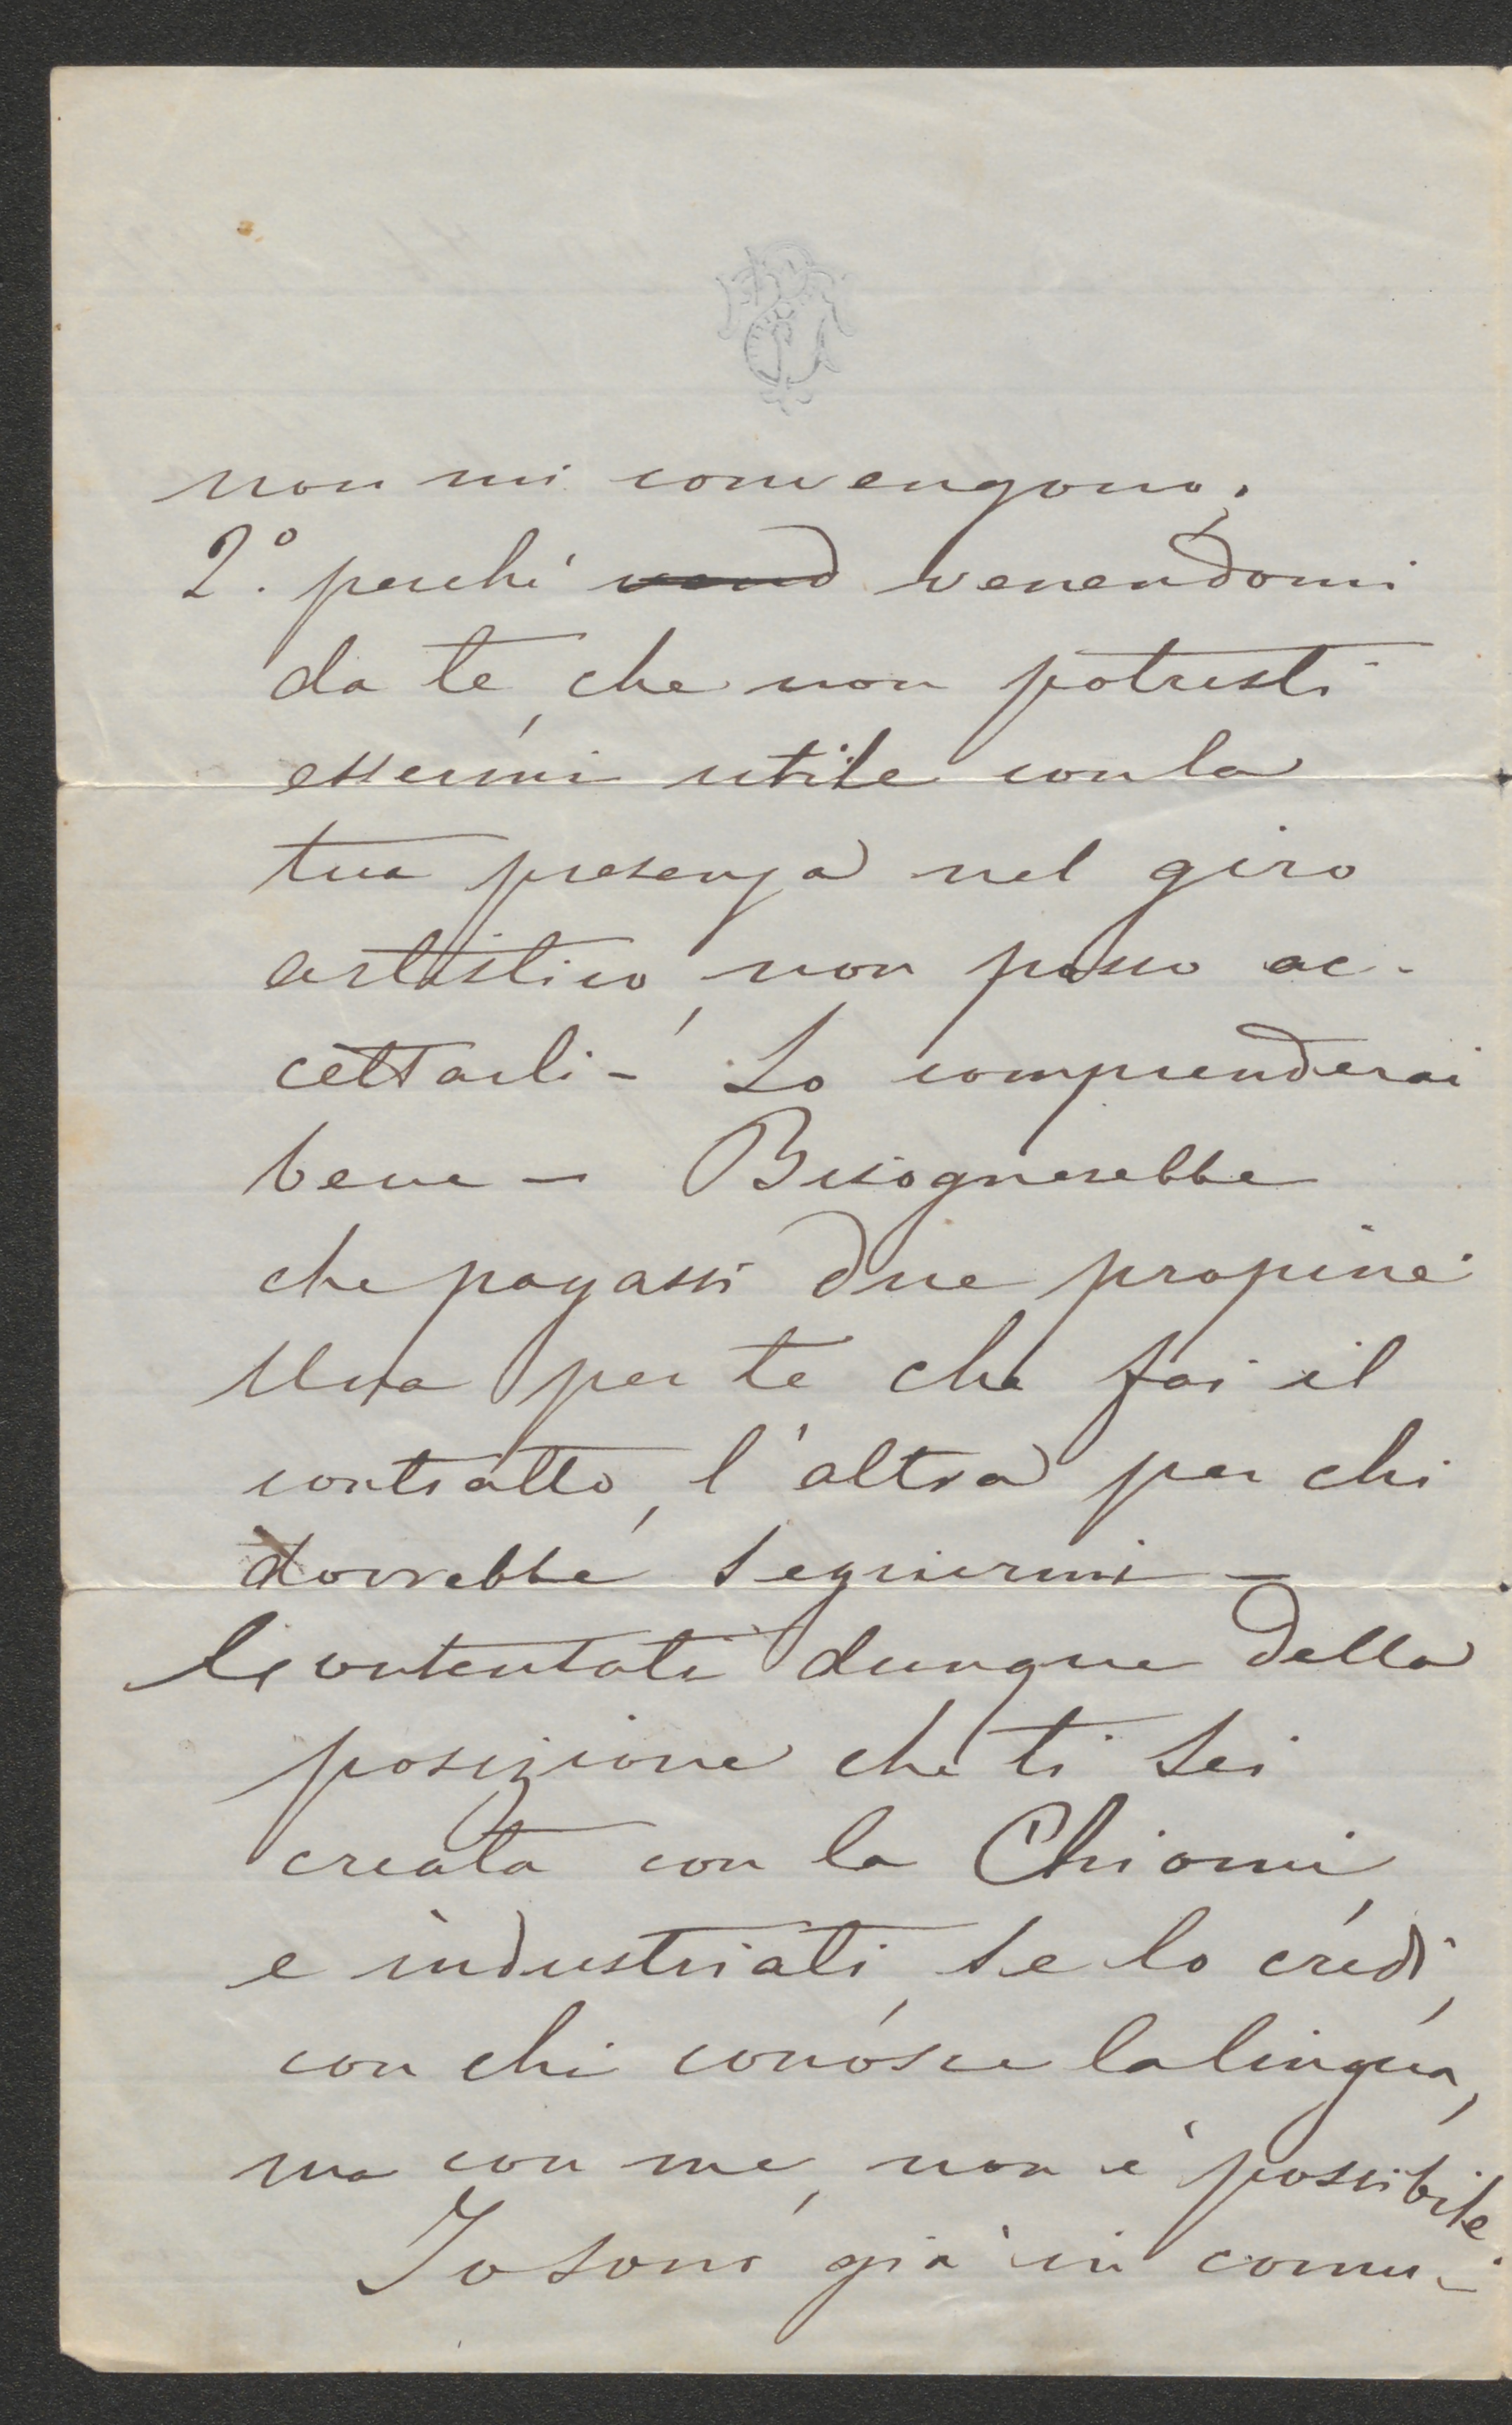 non mi convengono;
2.º perchè vend venendomi
da te, che non potresti
essermi utile con la
tua presenza nel giro
artistico, non posso ac-
cettarli - Lo comprenderai
bene - Bisognerebbe
che pagassi due propine
Una per te che fai il
contratto, l'altra per chi
dovrebbe seguirmi -
Contentati dunque della
posizione che ti sei
creata con la Chiomi,
e industriati, se lo credi,
con chi conosce la lingua,
ma con me, non è possibile.
Io sono già in comu-